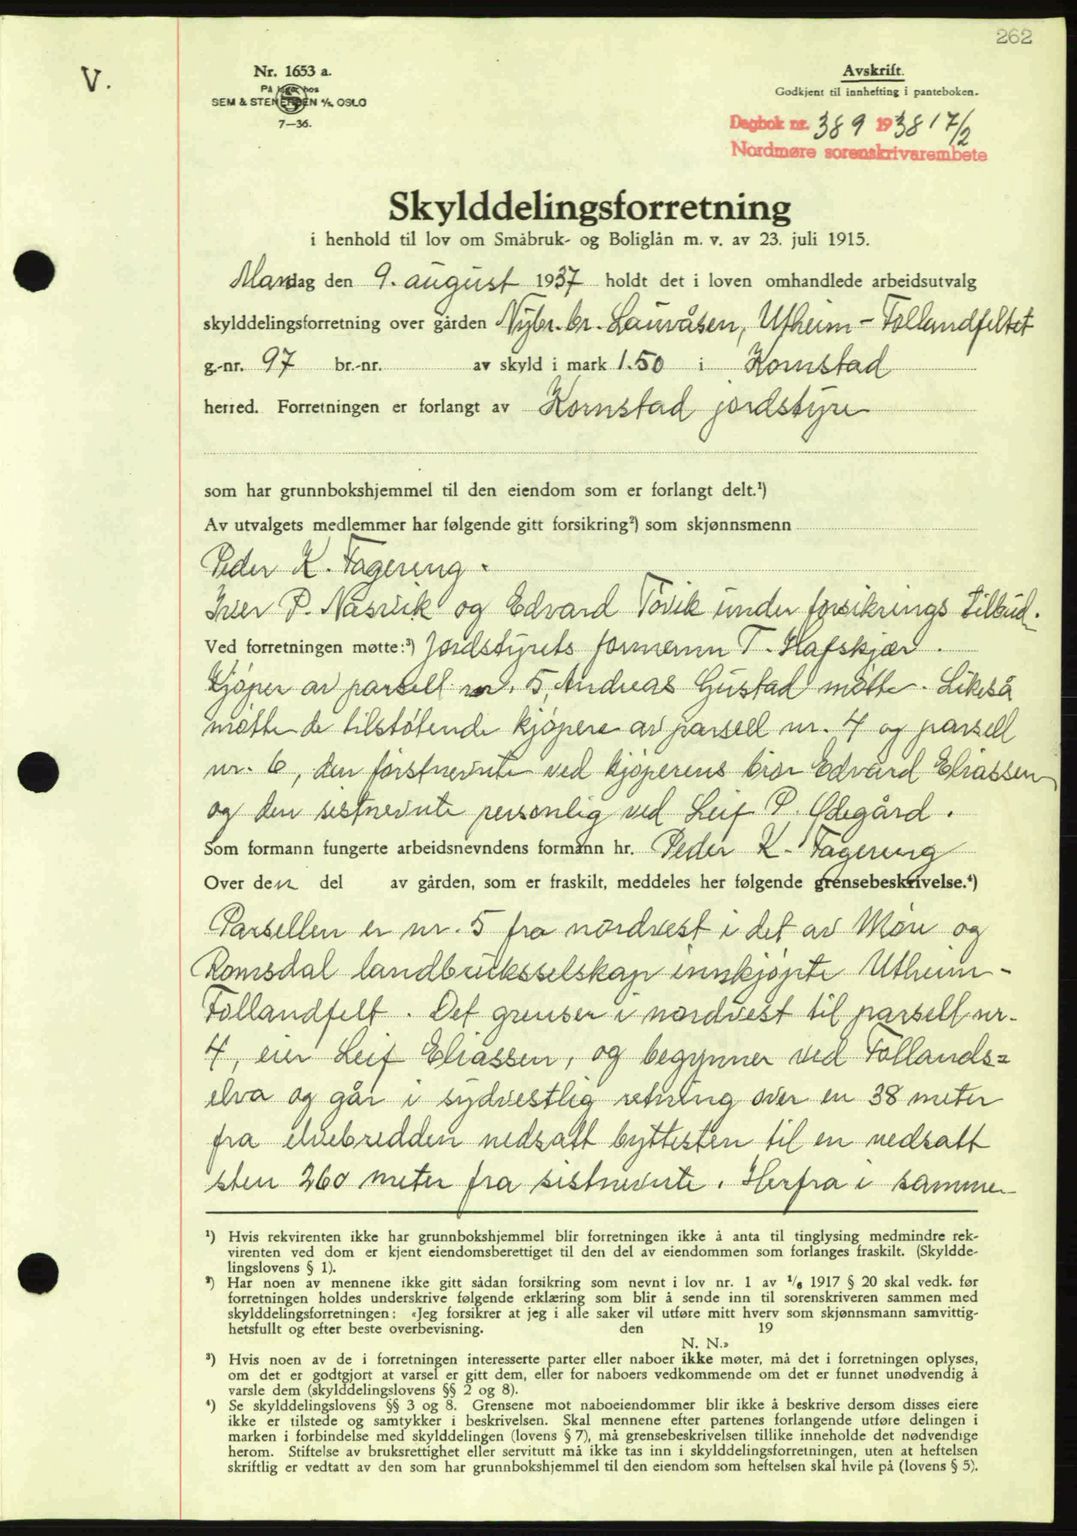 262
V.
Nr. 1653 a.
På lager hos
SEM & STENERSEN A/S, OSLO
7—36.
Avskrift.
Godkjent til innhefting i panteboken.
Dagbok nr. 389 1938 17/2
Nordmøre sorenskrivarembete
Skylddelingsforretning
i henhold til lov om Småbruk- og Boliglån m. v. av 23. juli 1915.
Mandag den 9. august 1937 holdt det i loven omhandlede arbeidsutvalg
skylddelingsforretning over gården Nybr. br. Lauvåsen, Utheim - Follandfeltet
g.-nr. 97 br.-nr. av skyld i mark 1.50 i Kornstad
herred. Forretningen er forlangt av Kornstad jordstyre
som har grunnbokshjemmel til den eiendom som er forlangt delt.¹)
Av utvalgets medlemmer har følgende gitt forsikring²) som skjønnsmenn
Peder K. Fagereng.
Iver P. Næsvik og Edvard Tøvik under forsikrings tilbud.
Ved forretningen møtte:³) Jordstyrets formann T. Hafskjær.
Kjøper av parsell nr. 5, Andreas Gustad møtte. Likeså
møtte de tilstøtende kjøpere av parsell nr. 4 og parsell
nr. 6, den førstnevnte ved kjøperens bror Edvard Eliassen
og den sistnevnte personlig ved Leif P. Ødegård.
Som formann fungerte arbeidsnevndens formann hr. Peder K. Fagereng
Over den del av gården, som er fraskilt, meddeles her følgende grensebeskrivelse.⁴)
Parsellen er nr. 5 fra nordvest i det av Møre og
Romsdal landbruksselskap innkjøpte Utheim-
Follandfelt. Det grenser i nordvest til parsell nr.
4, eier Leif Eliassen, og begynner ved Follands=
elva og går i sydvestlig retning over en 38 meter
fra elvebredden nedsatt byttesten til en nedsatt
sten 260 meter fra sistnevnte. Herfra i samme
¹) Hvis rekvirenten ikke har grunnbokshjemmel blir forretningen ikke å anta til tinglysing medmindre rek-
virenten ved dom er kjent eiendomsberettiget til den del av eiendommen som forlanges fraskilt. (Skyldde-
lingslovens § 1).
²) Har noen av mennene ikke gitt sådan forsikring som nevnt i lov nr. 1 av 1/6 1917 § 20 skal vedk. før
forretningen holdes underskrive følgende erklæring som blir å sende inn til sorenskriveren sammen med
skylddelingsforretningen: «Jeg forsikrer at jeg i alle saker vil utføre mitt hverv som skjønnsmann samvittig-
hetsfullt og efter beste overbevisning. den 19
N. N.»
³) Hvis noen av de i forretningen interesserte parter eller naboer ikke møter, må det i forretningen oplyses,
om det er godtgjort at varsel er gitt dem, eller for naboers vedkommende om det er funnet unødvendig å
varsle dem (skylddelingslovens §§ 2 og 8).
⁴) Se skylddelingslovens §§ 3 og 8. Grensene mot naboeiendommer blir ikke å beskrive dersom disses eiere
ikke er tilstede og samtykker i beskrivelsen. Skal mennene efter partenes forlangende utføre delingen i
marken i forbindelse med skylddelingen (lovens § 7), må grensebeskrivelsen tillike inneholde det nødvendige
herom. Stiftelse av bruksrettighet eller servitutt må ikke tas inn i skylddelingsforretningen, uten at heftelsen
skriftlig er vedtatt av den som har grunnbokshjemmel til den eiendom som heftelsen skal hvile på (lovens § 5).